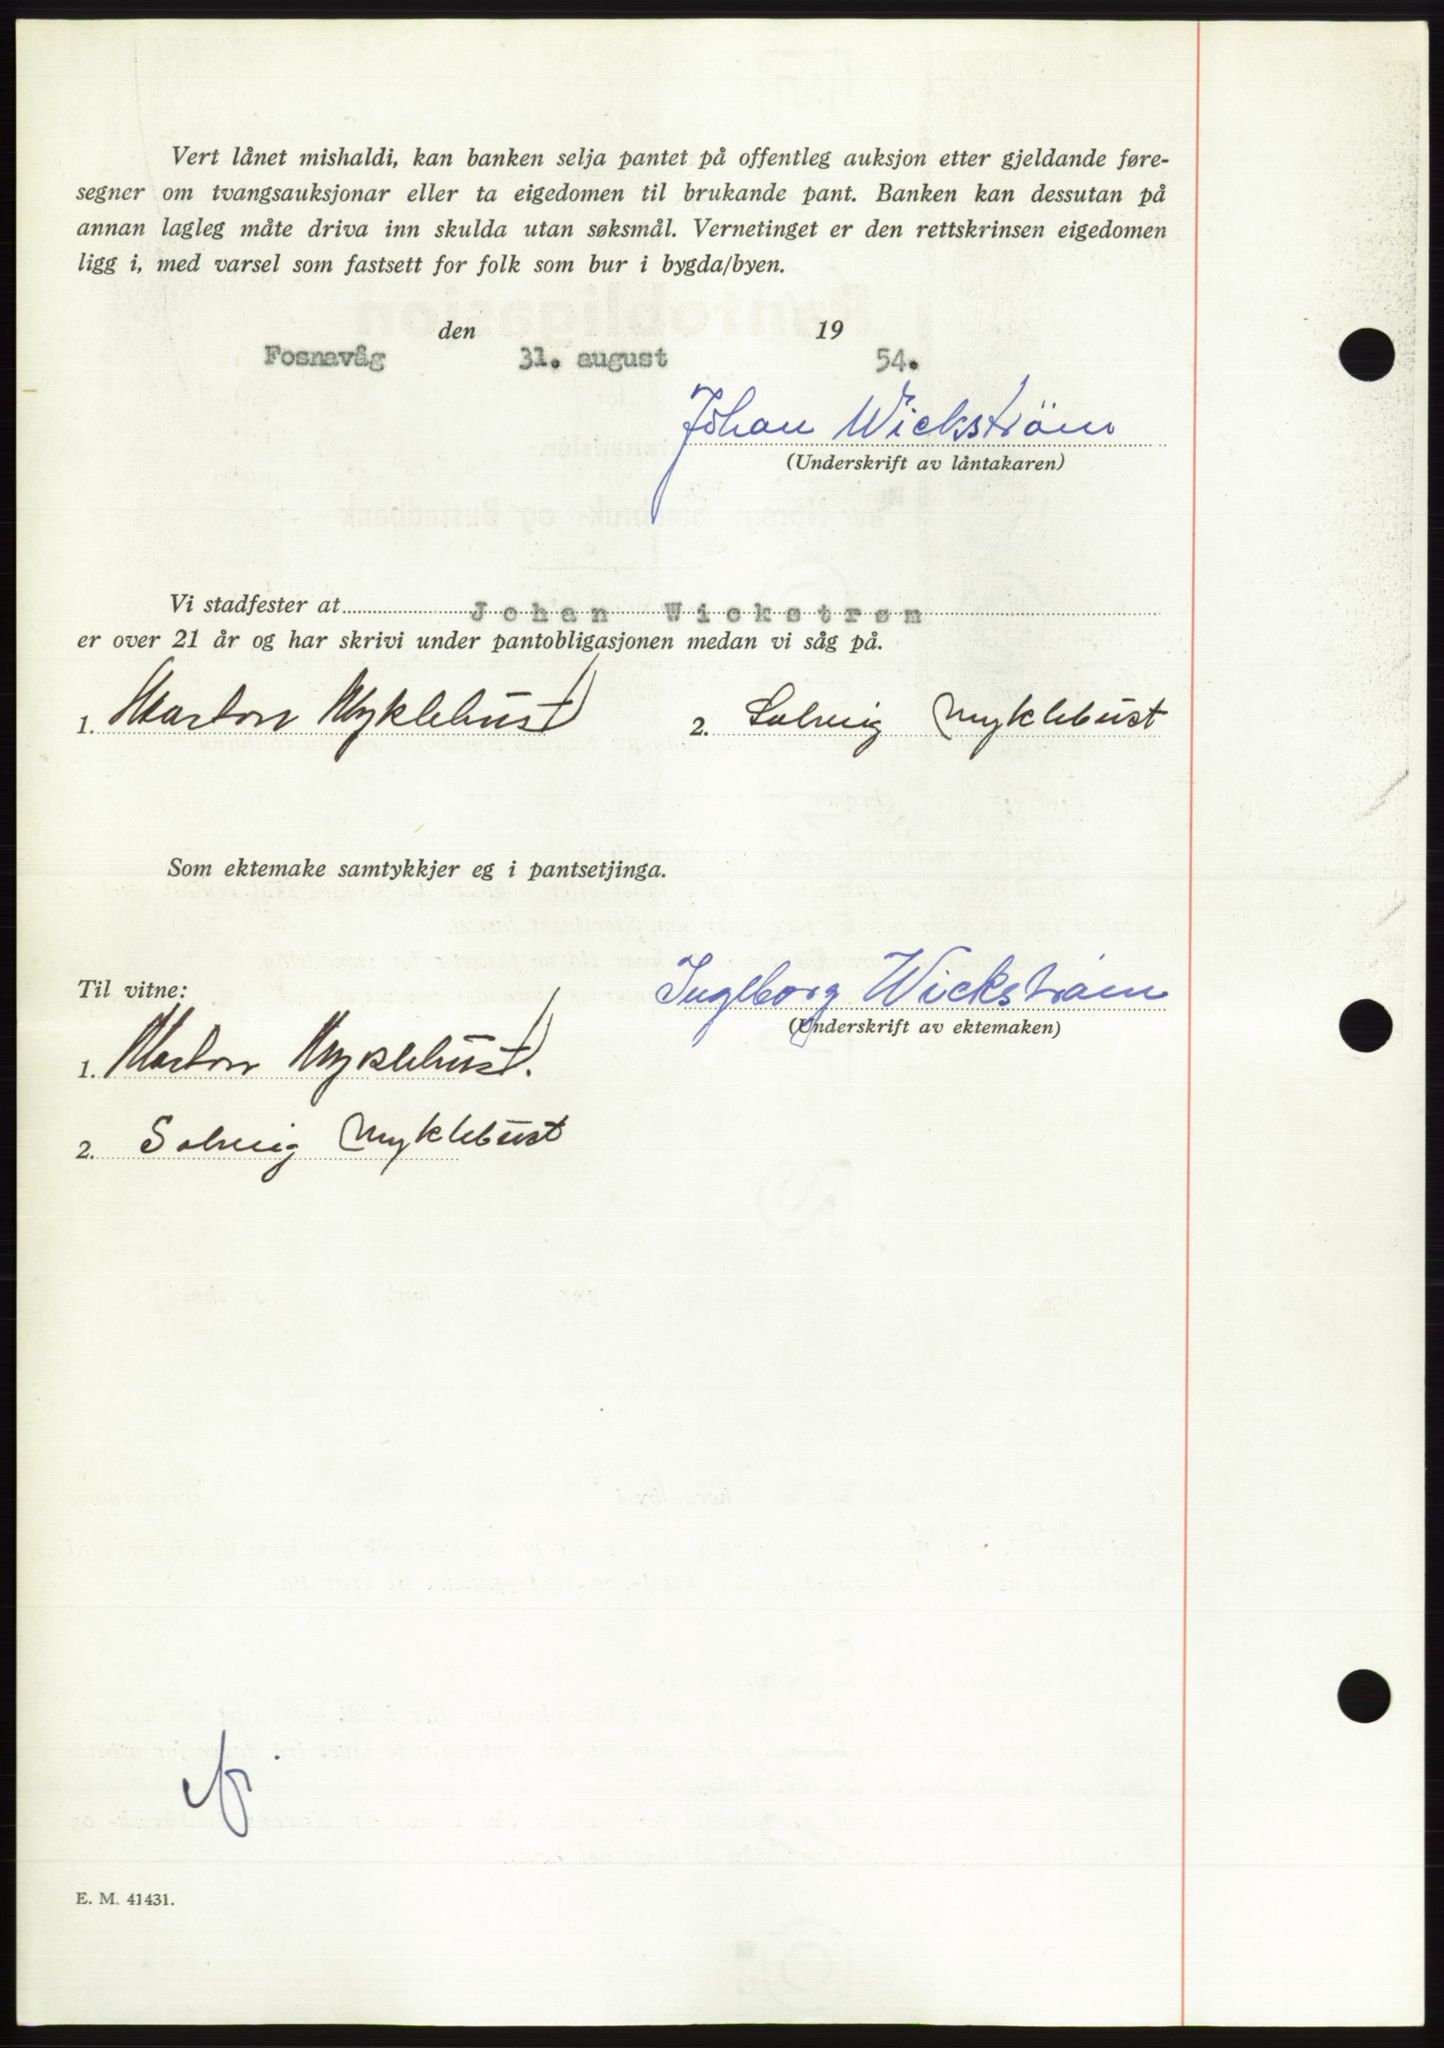 Vert lånet mishaldi, kan banken selja pantet på offentleg auksjon etter gjeldande føre-
segner om tvangsauksjonar eller ta eigedomen til brukande pant. Banken kan dessutan på
annan lagleg måte driva inn skulda utan søksmål. Vernetinget er den rettskrinsen eigedomen
ligg i, med varsel som fastsett for folk som bur i bygda/byen.
den 19
Fosnavåg 31. august 54.
Johan Wickström
(Underskrift av låntakaren)
Vi stadfester at Johan Wickstrøm
er over 21 år og har skrivi under pantobligasjonen medan vi såg på.
1. Marton Myklebust 2. Solveig Myklebust
Som ektemake samtykkjer eg i pantsetjinga.
Til vitne: Ingeborg Wickstrøm
(Underskrift av ektemaken)
1. Marton Myklebust.
2. Solveig Myklebust
E. M. 41431.